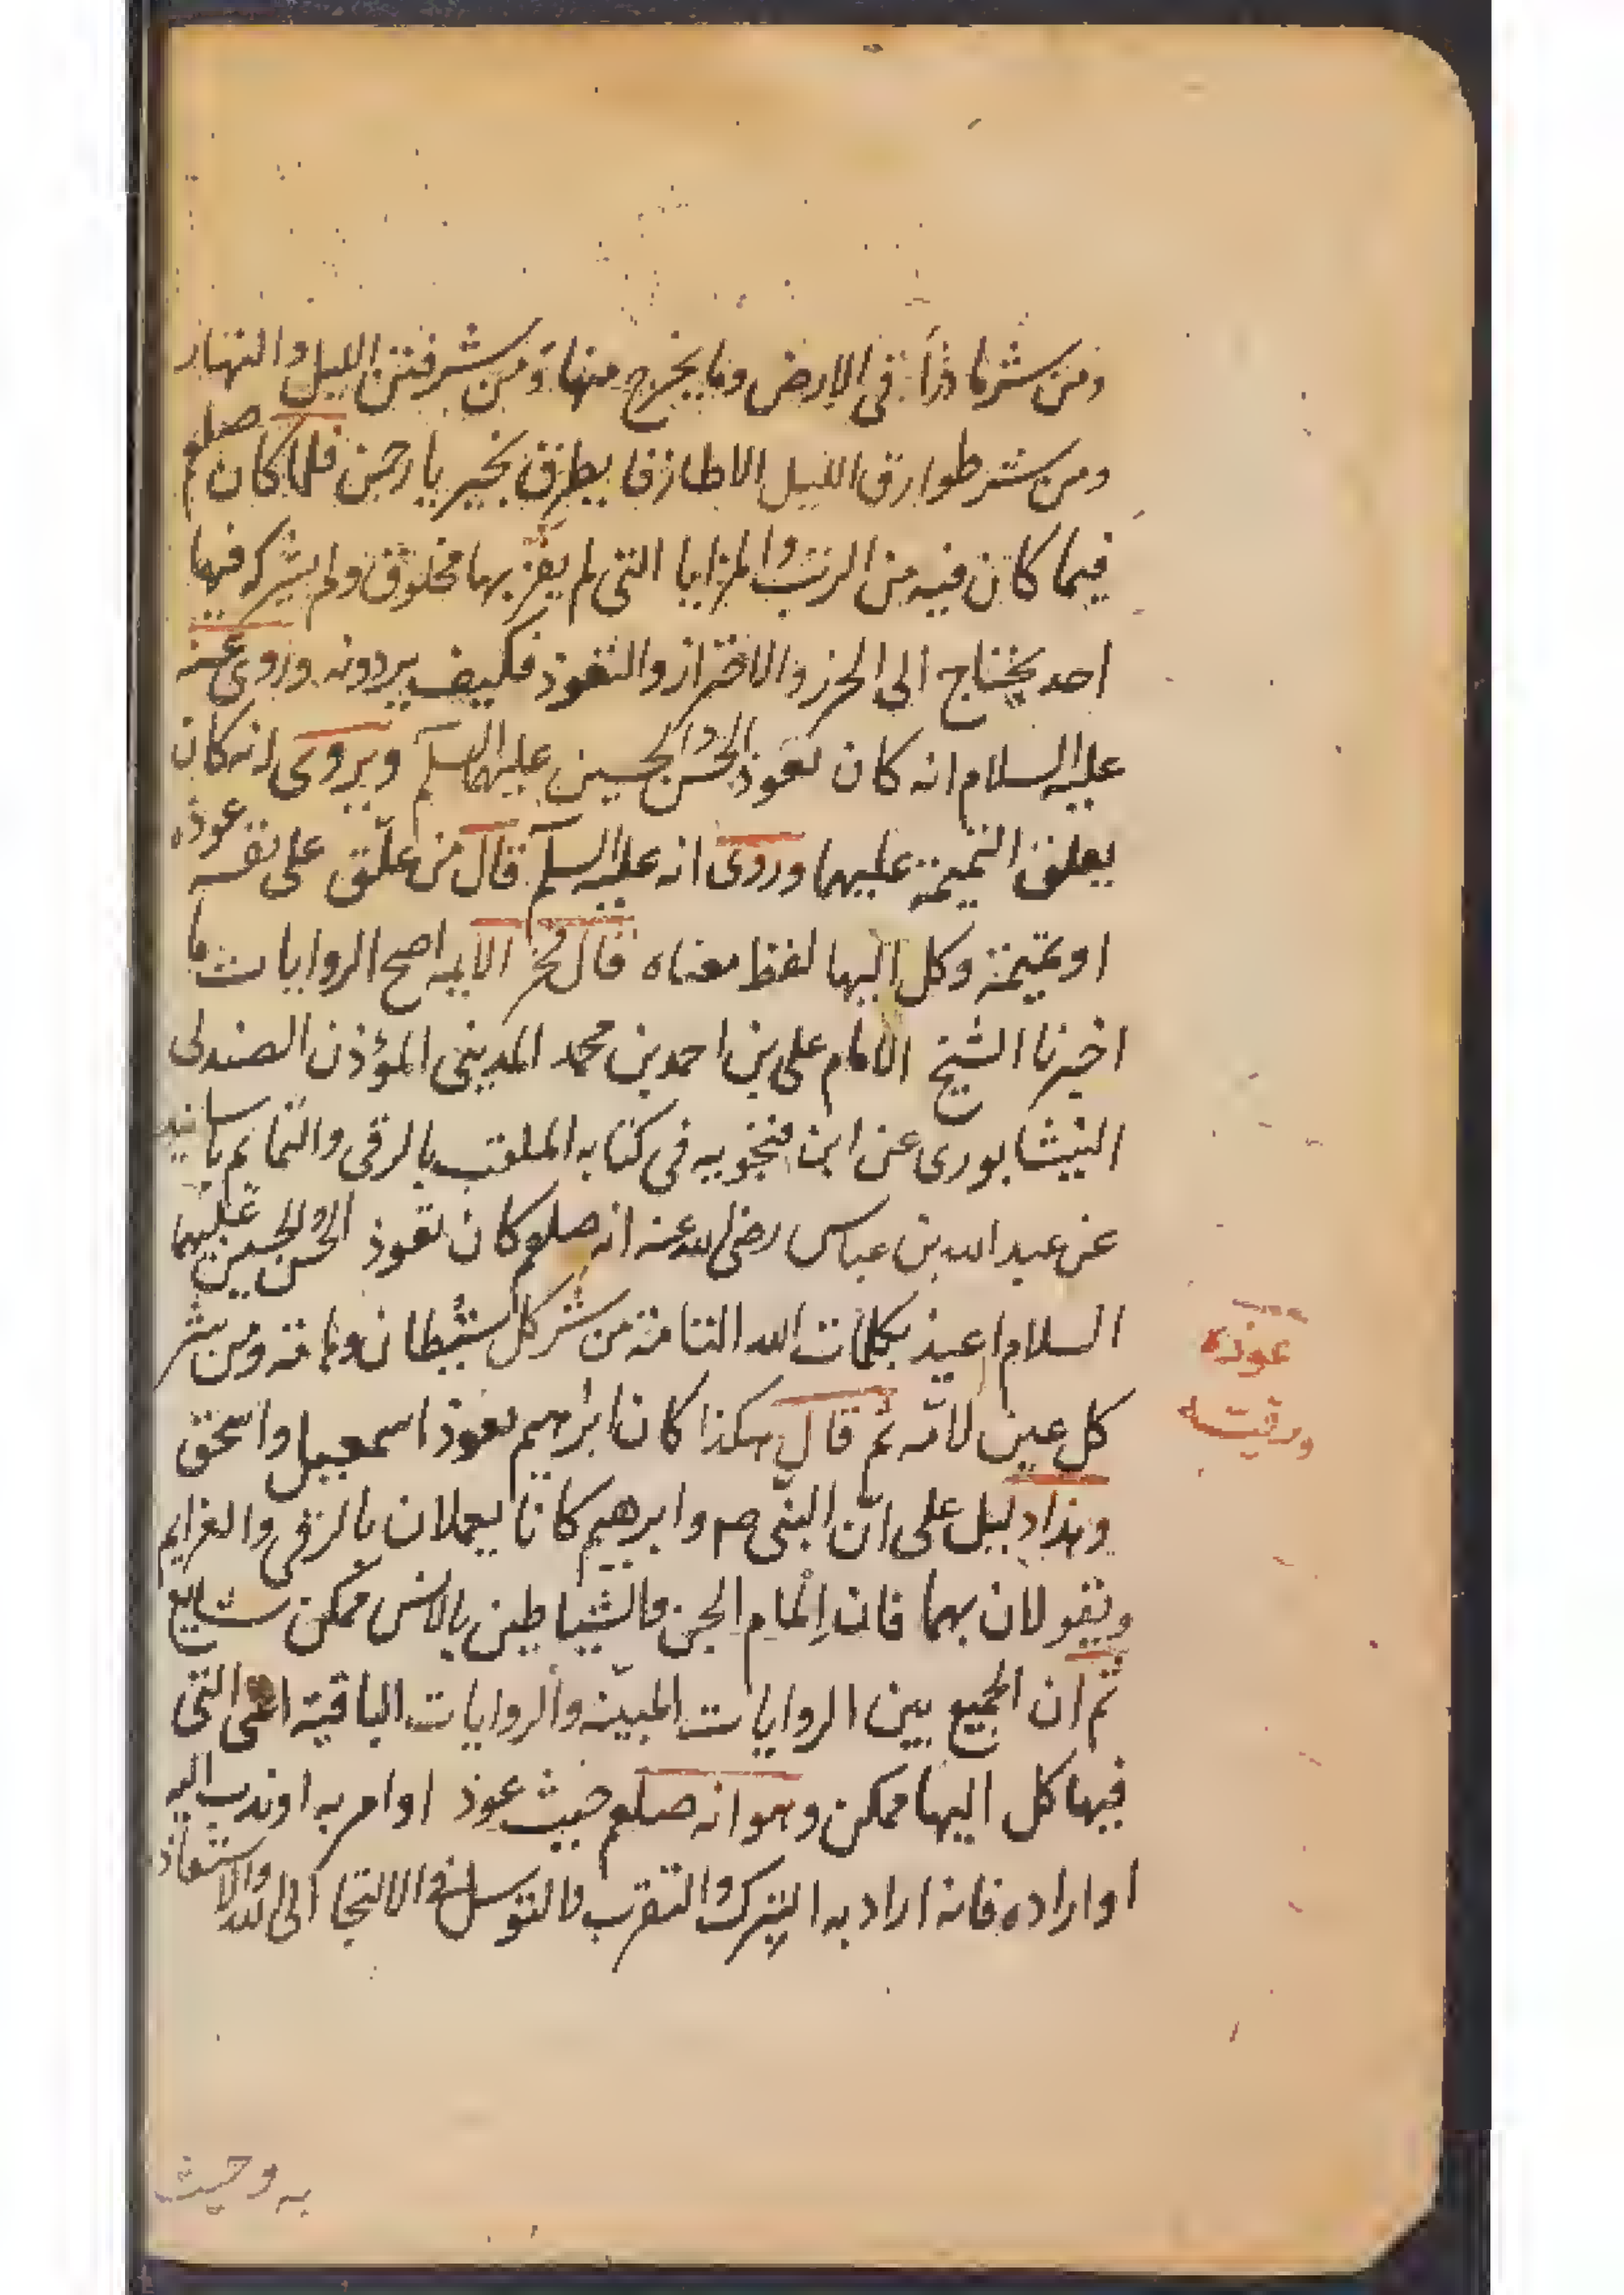 ومن شر ما ذرأ فى الارض وما يخرج منها ومن شر فتن الليل والنهار
ومن شر طوارق الليل الا طارقا يطرق بخير يا رحمن فلما كان صلعم
فيما كان فيه من الرتب والمزايا التى لم يفز بها مخلوق ولم يشركه فيها
احد يحتاج الى الحرز والاحتراز والتعوذ فكيف بردونه وروى عنه
عليه السلام انه كان تعوذ الحسن والحسين عليهما السلم ويروى انه كان
يعلق التميمة عليهما وروى انه عليه السلم قال من علّق على نفسه عوذة
او تميمة وكل اليها لفظ معناه قال فخر الايمه اصح الروايات ما
اخبرنا الشيخ الامام على بن احمد بن محمد المدينى المؤذن الصندلى
النيشابورى عن ابن فنجويه فى كتابه الملقب بالرقى والتمايم باسانيد
عن عبد الله بن عباس رضى الله عنه انه صلعم كان تعوذ الحسن والحسين عليهما
السلام اعيذ بكلمات الله التامة من شر كل شيطان وهامة ومن شر
كل عين لامّه ثم قال هكذا كان ابرهيم يعوذ اسمعيل واسحق
وهذا دليل على انّ النبى صم وابرهيم كانا يعملان بالرقى والعزايم
ويقولان بهما فان المام الجن والشياطين بالانس ممكن شايع
ثم ان الجمع بين الروايات المبيّنه والروايات الباقية اعنى التى
فيها كل اليها ممكن وهو انه صلعم حيث عوذ او امر به او ندب اليه
او اراده فانه اراد به التبرك والتقرب والتوسل فى الالتجا الى الله والاستعاذ
عوذة
ورقيته
به وحيث